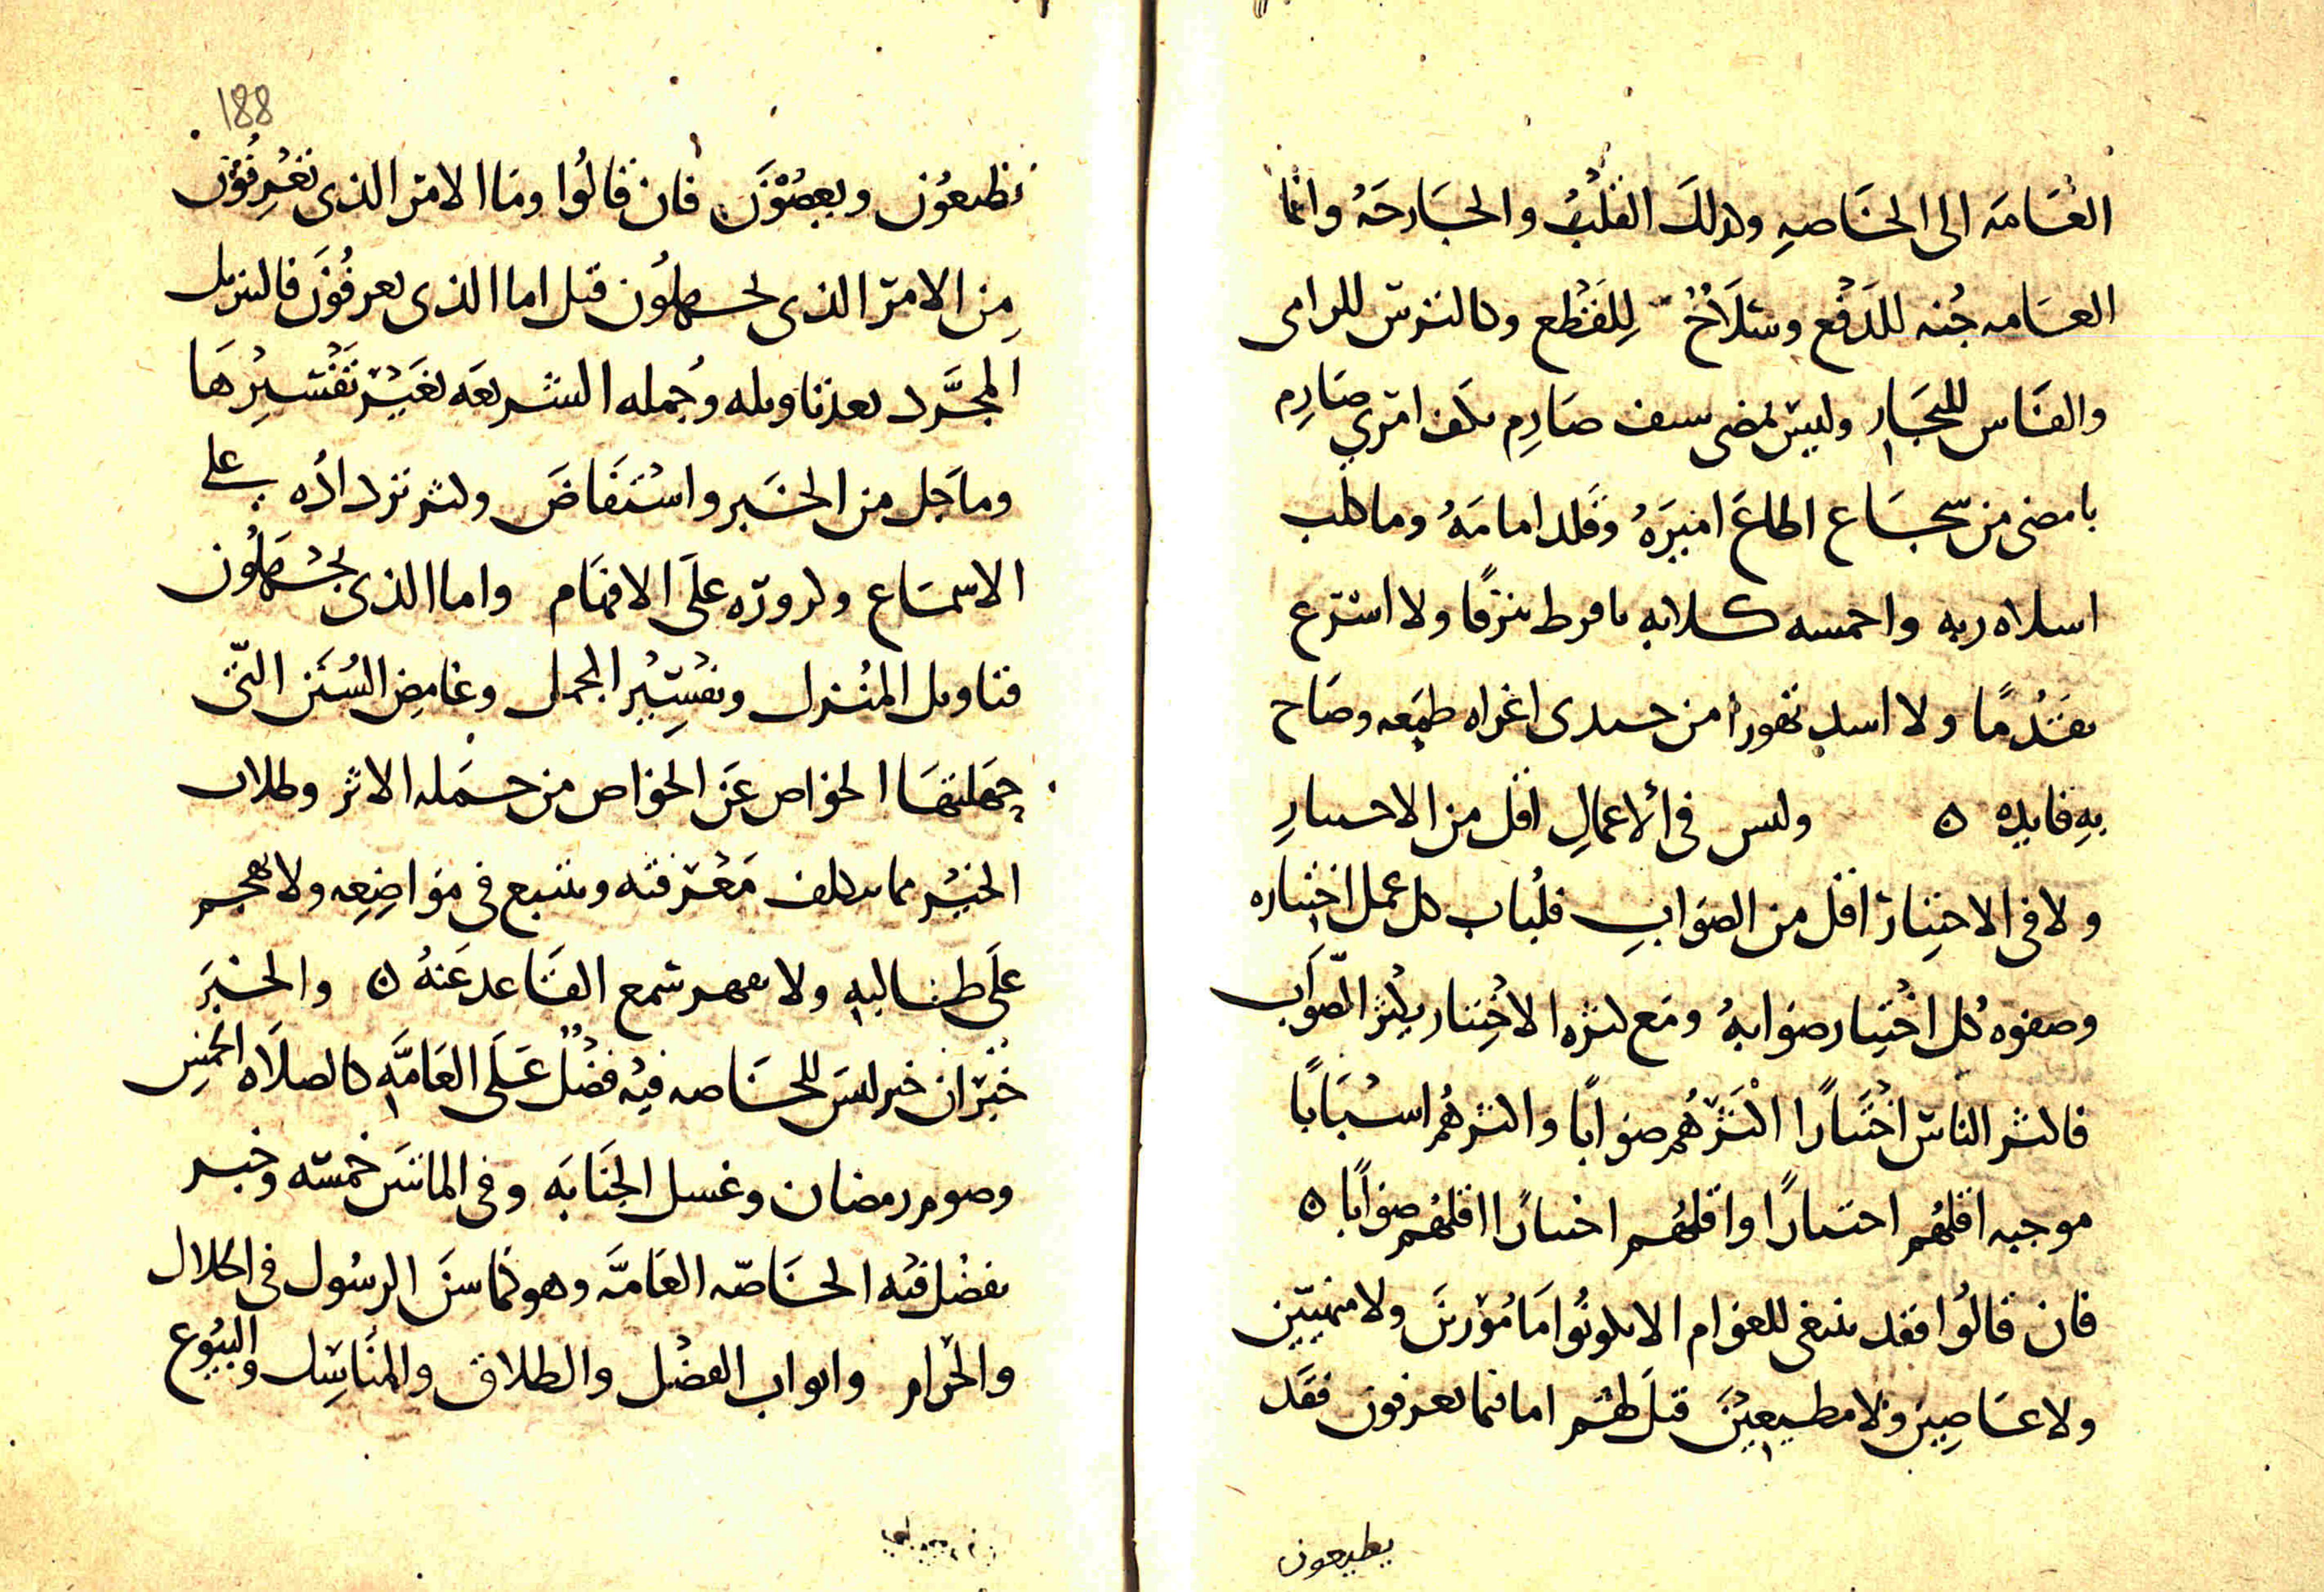 العَامَه الى الخَاصهِ وكذلكَ القَلْبُ والجَارحَهُ وانما
العَامه جُنه للدَفْع وسَلَاحٌ لِلقَطْع وكالترس للرامى
والفَاس للنجَار وليسَ مضى سيف صَارِم بكف امرىٍ صَارِم
بامضى من شجَاع اطاعَ اميرَهُ وقَلد امامَهُ وما كلب
اسلاه ربه واحمسه كلابه بافرط نزقًا ولا اسْرع
تقَدُمًا ولا اسد تهورا من جندى اغراه طمَعه وصَاح
بهِ قايده ٥ وليس فى الأعمالِ اقل من الاختيارِ
ولا فى الاختِيَار اقل من الصوَابِ فلُباب كل عمل اختياره
وصفوه كل اخْتِيار صوَابهُ ومَع كثره الاخْتِيار يكْثر الصّوَاب
فاكثر الناس اخْتيَارًا اكْثَرُهُم صوَابًا واكثرهُم اسْبَابًا
موجبه اقلهُم اختيارًا واقلهُم اختيارًا اقلهُم صوَابًا ٥
فان قالُوا فقد ينبغى للعوَام الا يكونُوا مَامُوْرينَ ولا منهيّين
ولا عَاصِين ولا مطيعِيْنَ قيلَ لهُم اما فيما يعرفون فقَد
يطيعون
يطيعُون ويعصُوْنَ فان قالُوا ومَا الامر الذى تعْرِفُوْن
مِن الامرَ الذى يجهلُون قيل اما الذى يعرفُوْنَ فالتنزيل
المجَرَّد بغير تاويله وجُمله الشريعَه بغَيْر تَفْسيْرِهَا
وماجَل من الخَبر واسْتَفَاضَ وكثر تردادُه على
الاسمَاع وكروره علَى الافهَام واما الذى يجْهَلُون
فتاويل المنْزل وتفسِيْر المجمل وغَامِض السُنَن التّى
حمَلتهَا الخوَاص عَن الخوَاص من حمَله الاثر وطلاب
الخبْر مما يتكلف مَعْرفته ويتتبع فى موَاضِعِه ولا يهجم
علَى طَالبهِ ولا يقهر سَمع القَاعد عَنهُ ٥ والخبَر
خَبَران خبر ليسَ للخَاصه فيْه فضْلٌ عَلَى العَامَّهِ كالصلَاه الخمسِ
وصوم رمضان وغسل الجَنَابَه وفى المائتَين خمسَه وخبر
يفضُل فيْه الخَاصّه العَامَّه وهو كمَا سنَ الرسُول فى الحلال
والحرام وابواب الفضْل والطلاق والمنَاسِك والبيُوع
188